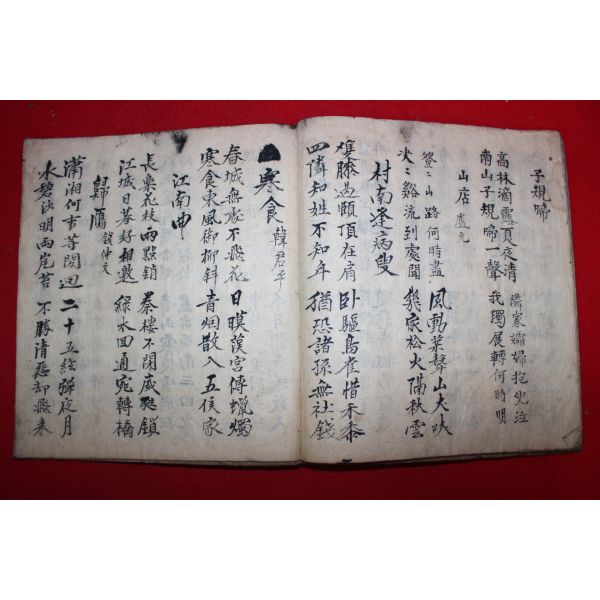 子規啼
高林滴露夏夜清
南山子規啼一聲
隣家孀婦抱兒泣
我獨展轉何時明
山店 盧
登〻山路何時盡
決〻谿流到處聞
風動葉聲山犬吠
幾家松火隔秋雲
村南逢病叟
雙膝過頤頂在肩
四隣知姓不知年
臥驅鳥雀惜禾黍
猶恐諸孫無社錢
寒食 韓君平
春城無處不飛花
寒食東風御柳斜
日暯漢宮傳蠟燭
青烟散入五侯家
江南曲
長樂花枝雨點銷
江城日暮好相邀
秦樓不閉葳蕤鎖
綠水回通宛轉橋
歸鴈 錢仲文
瀟湘何事等閑迴
水碧沙明兩岸苔
二十五絃彈夜月
不勝清怨却飛來